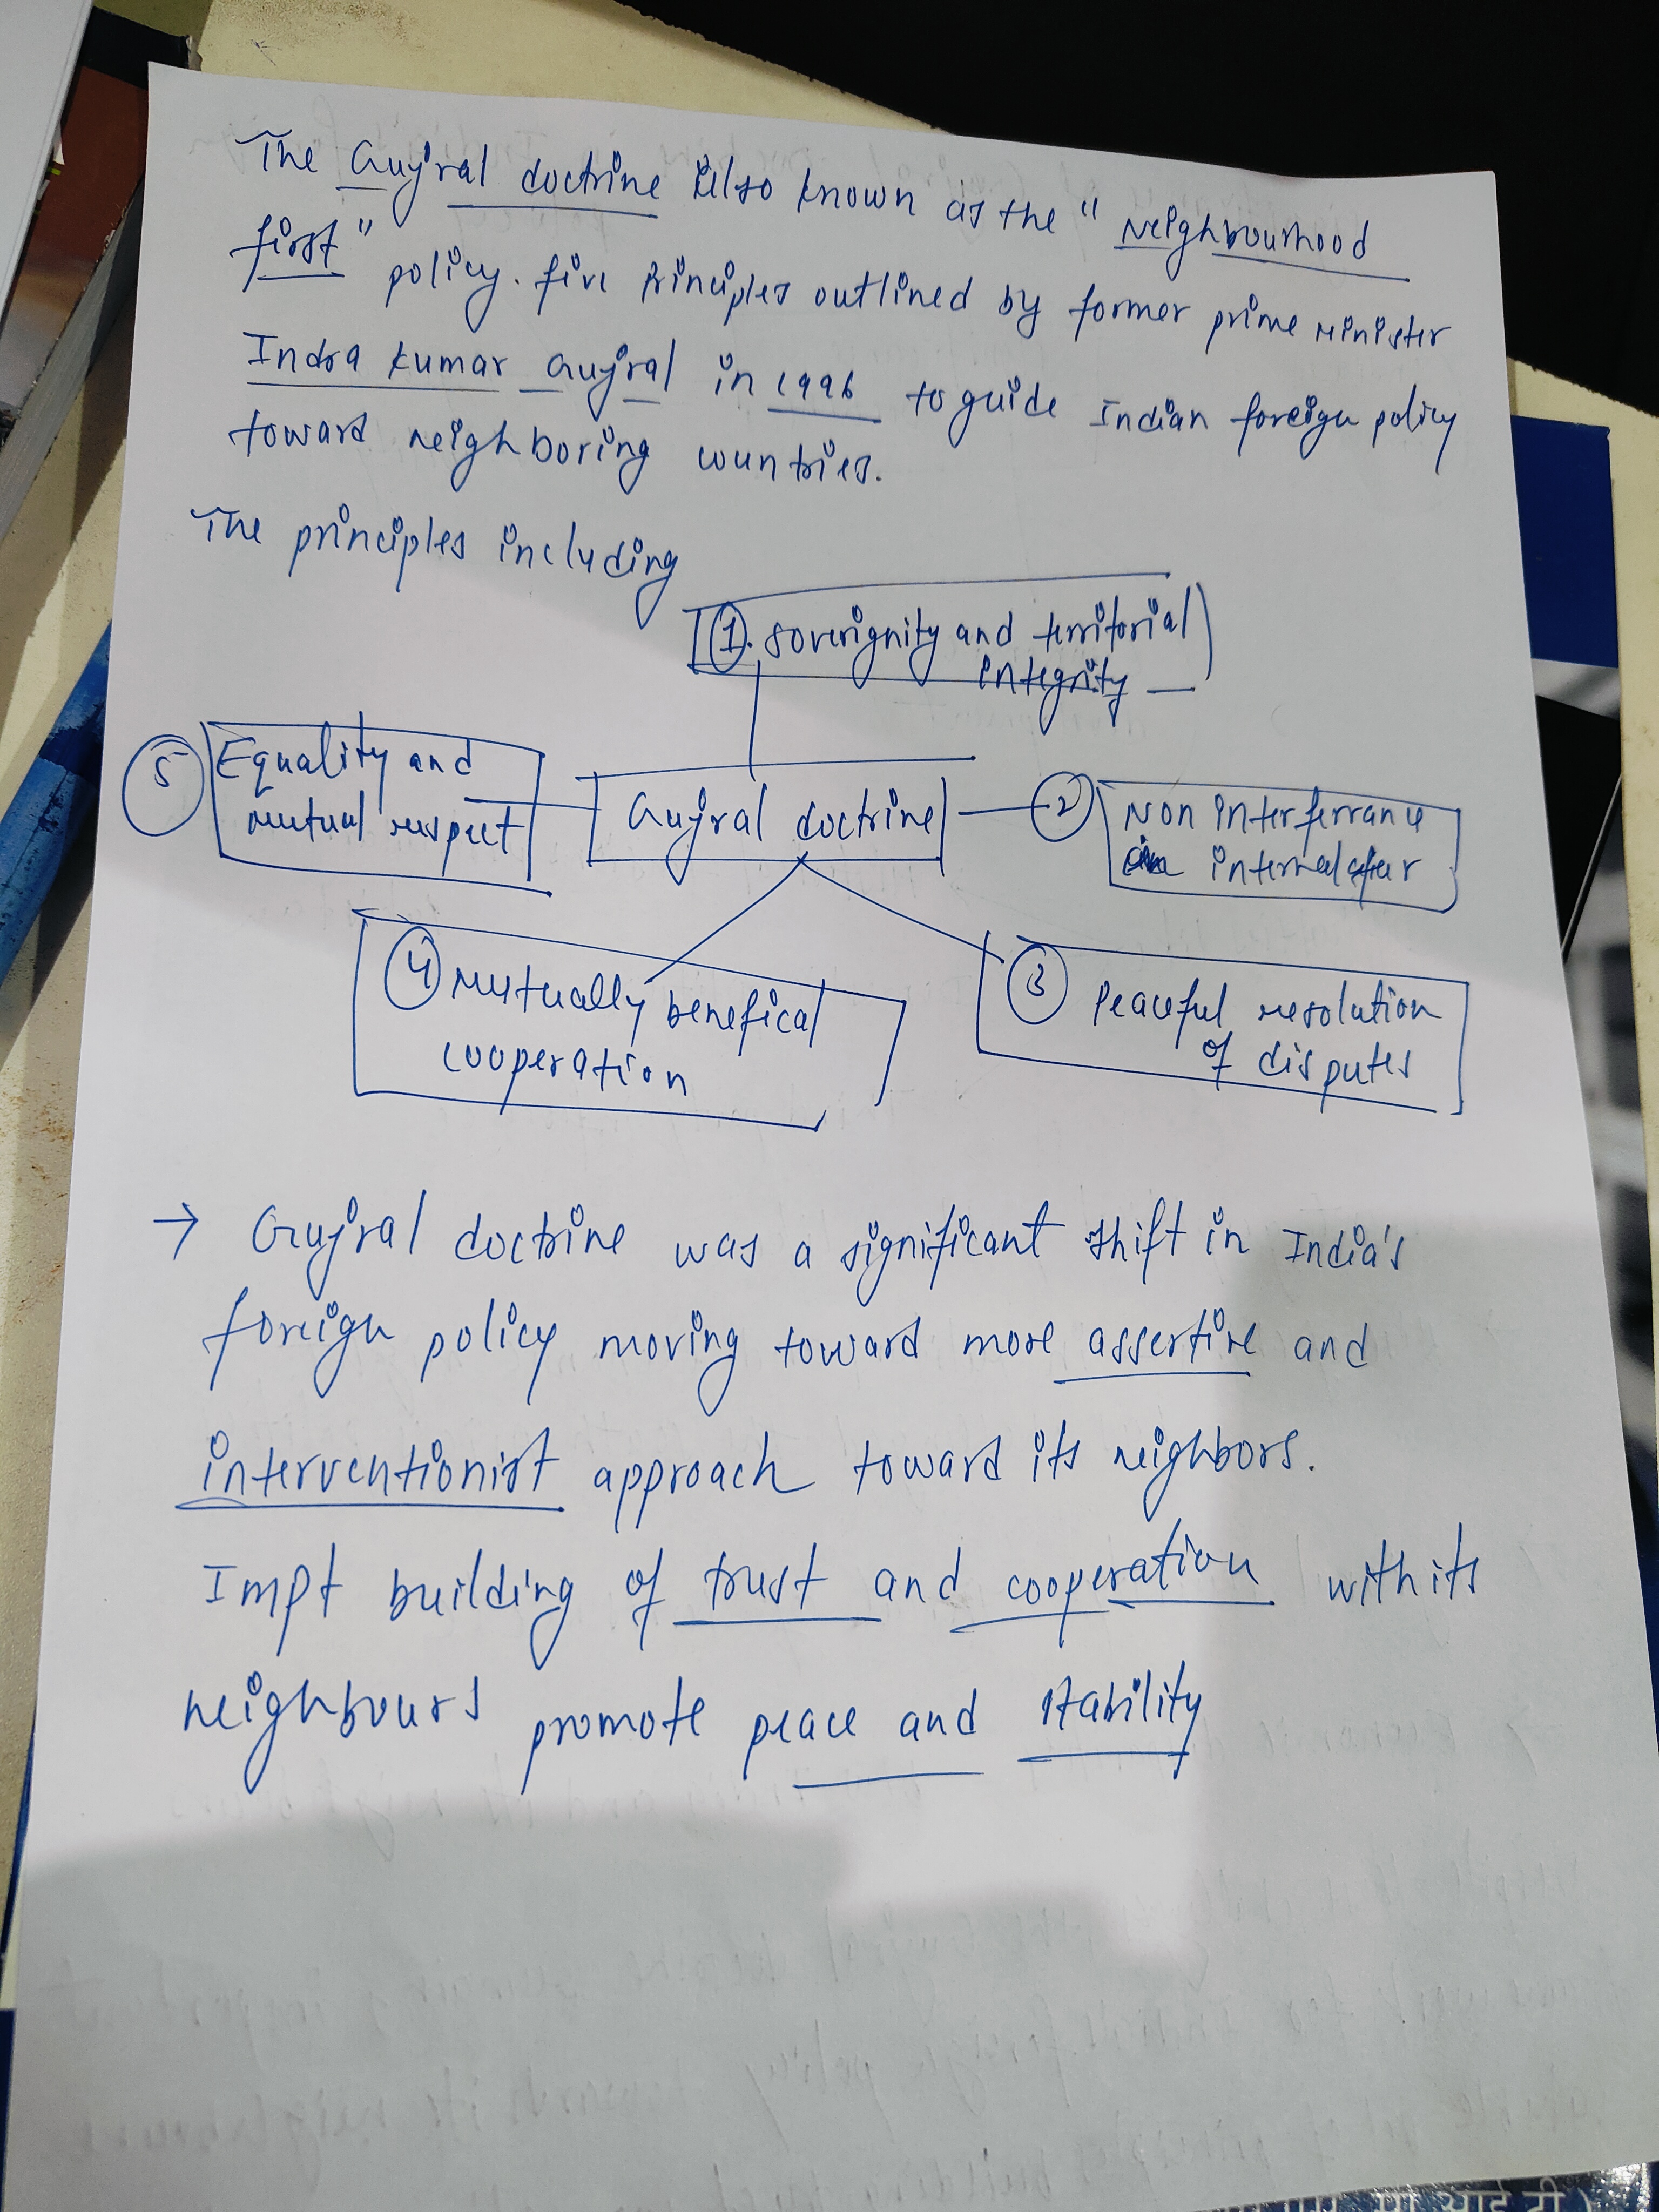 The Gujral doctrine also known as the "Neighbourhood
first" policy. five principles outlined by former prime Minister
Indra kumar Gujral in 1996 to guide Indian foreign policy
toward neighboring countries.
The principles including
1. sovrignity and territorial
integrity
5 Equality and
mutual respect
Gujral doctrine
2 Non interferrance
in internal
4 Mutually benefical
cooperation
3 Peaceful resolution
of disputes
→ Gujral doctrine was a significant shift in India's
foreign policy moving toward more assertive and
interventionist approach toward its neighbors.
Impt building of trust and cooperation with its
neighbours promote peace and stability